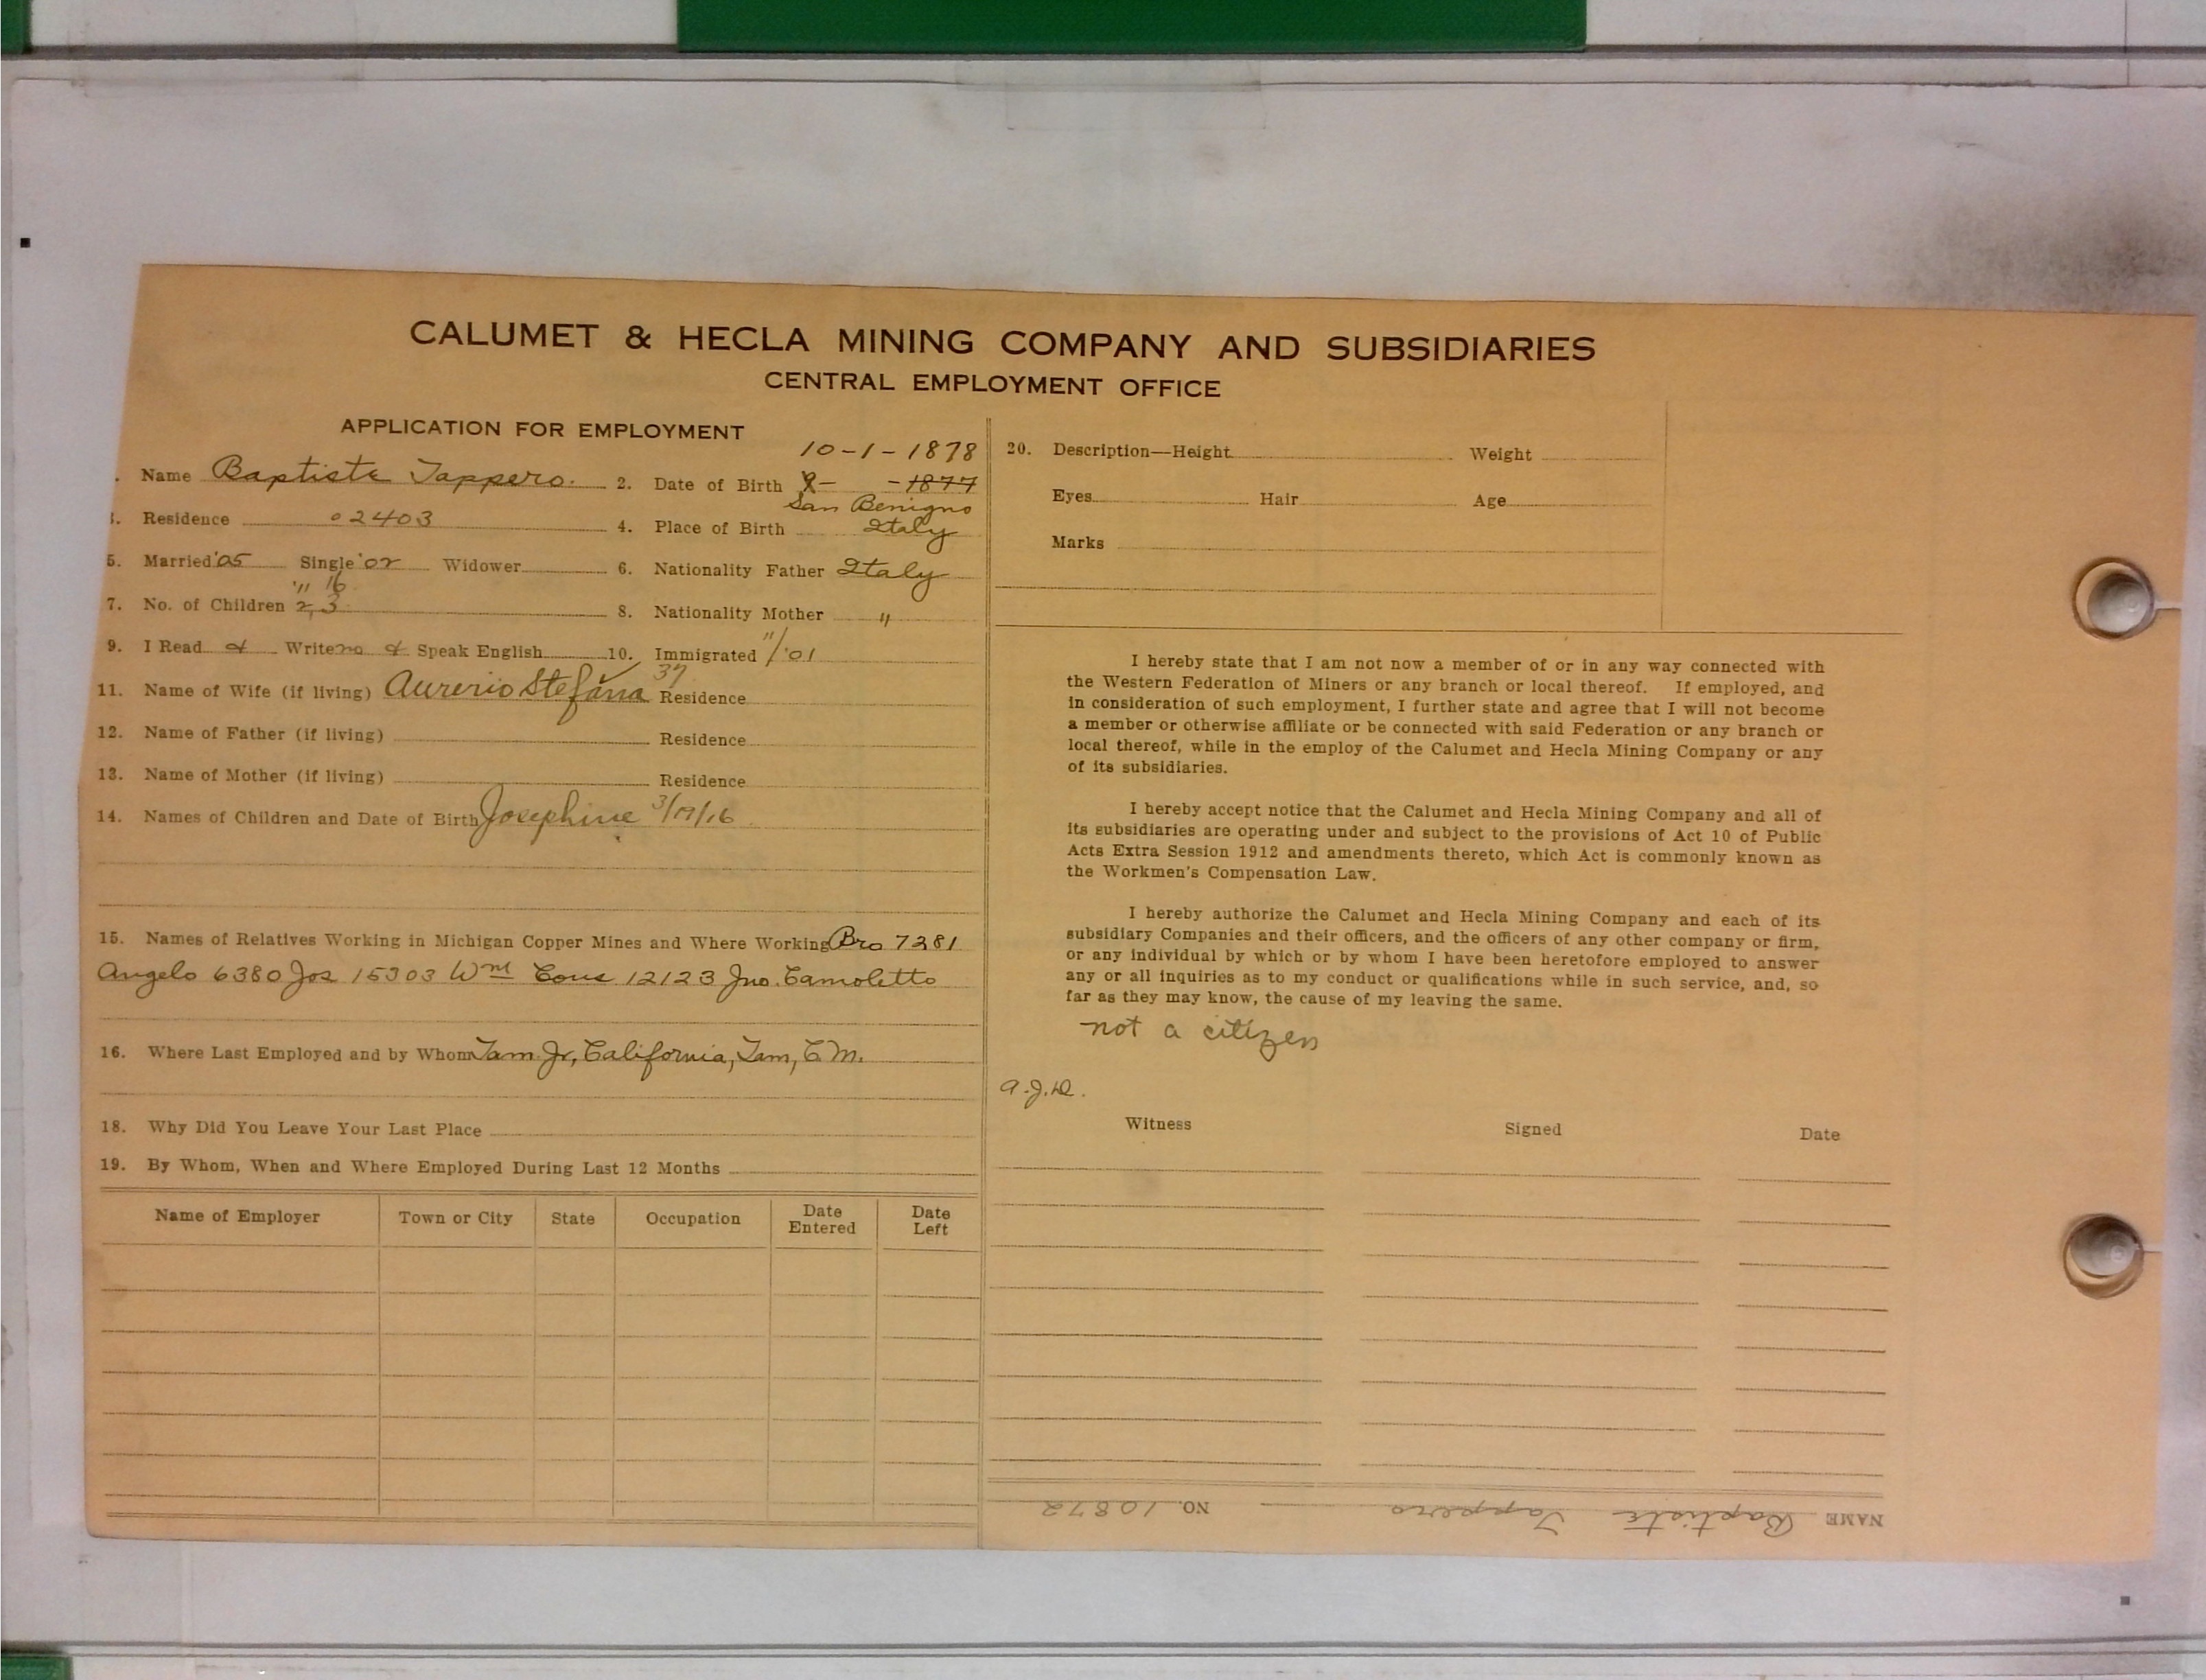 CALUMET & HECLA MINING COMPANY AND SUBSIDIARIES
CENTRAL EMPLOYMENT OFFICE
APPLICATION FOR EMPLOYMENT
10-1-1878
. Name Baptiste Tappero. 2. Date of Birth - -1877
San Benigno
3. Residence 02403 4. Place of Birth Italy
5. Married '05 Single 'or Widower 6. Nationality Father Italy
" 16
7. No. of Children 2, 3 8. Nationality Mother "
9. I Read & Write no & Speak English 10. Immigrated "/'01
37
11. Name of Wife (if living) Aurerio Stefana Residence
12. Name of Father (if living) Residence
13. Name of Mother (if living) Residence
14. Names of Children and Date of Birth Josephine 3/19/16
15. Names of Relatives Working in Michigan Copper Mines and Where Working Bro 7281
Angelo 6380 Jos 15303 Wm Cous 12123 Jno. Camoletto
16. Where Last Employed and by Whom Tam. Jr, California, Tam, C. M.
18. Why Did You Leave Your Last Place
19. By Whom, When and Where Employed During Last 12 Months
Name of Employer Town or City State Occupation Date Entered Date Left
20. Description—Height Weight
Eyes Hair Age
Marks
I hereby state that I am not now a member of or in any way connected with
the Western Federation of Miners or any branch or local thereof. If employed, and
in consideration of such employment, I further state and agree that I will not become
a member or otherwise affiliate or be connected with said Federation or any branch or
local thereof, while in the employ of the Calumet and Hecla Mining Company or any
of its subsidiaries.
I hereby accept notice that the Calumet and Hecla Mining Company and all of
its subsidiaries are operating under and subject to the provisions of Act 10 of Public
Acts Extra Session 1912 and amendments thereto, which Act is commonly known as
the Workmen's Compensation Law.
I hereby authorize the Calumet and Hecla Mining Company and each of its
subsidiary Companies and their officers, and the officers of any other company or firm,
or any individual by which or by whom I have been heretofore employed to answer
any or all inquiries as to my conduct or qualifications while in such service, and, so
far as they may know, the cause of my leaving the same.
not a citizen
a.J.D.
Witness Signed Date
NAME Baptiste Tappero NO. 10872